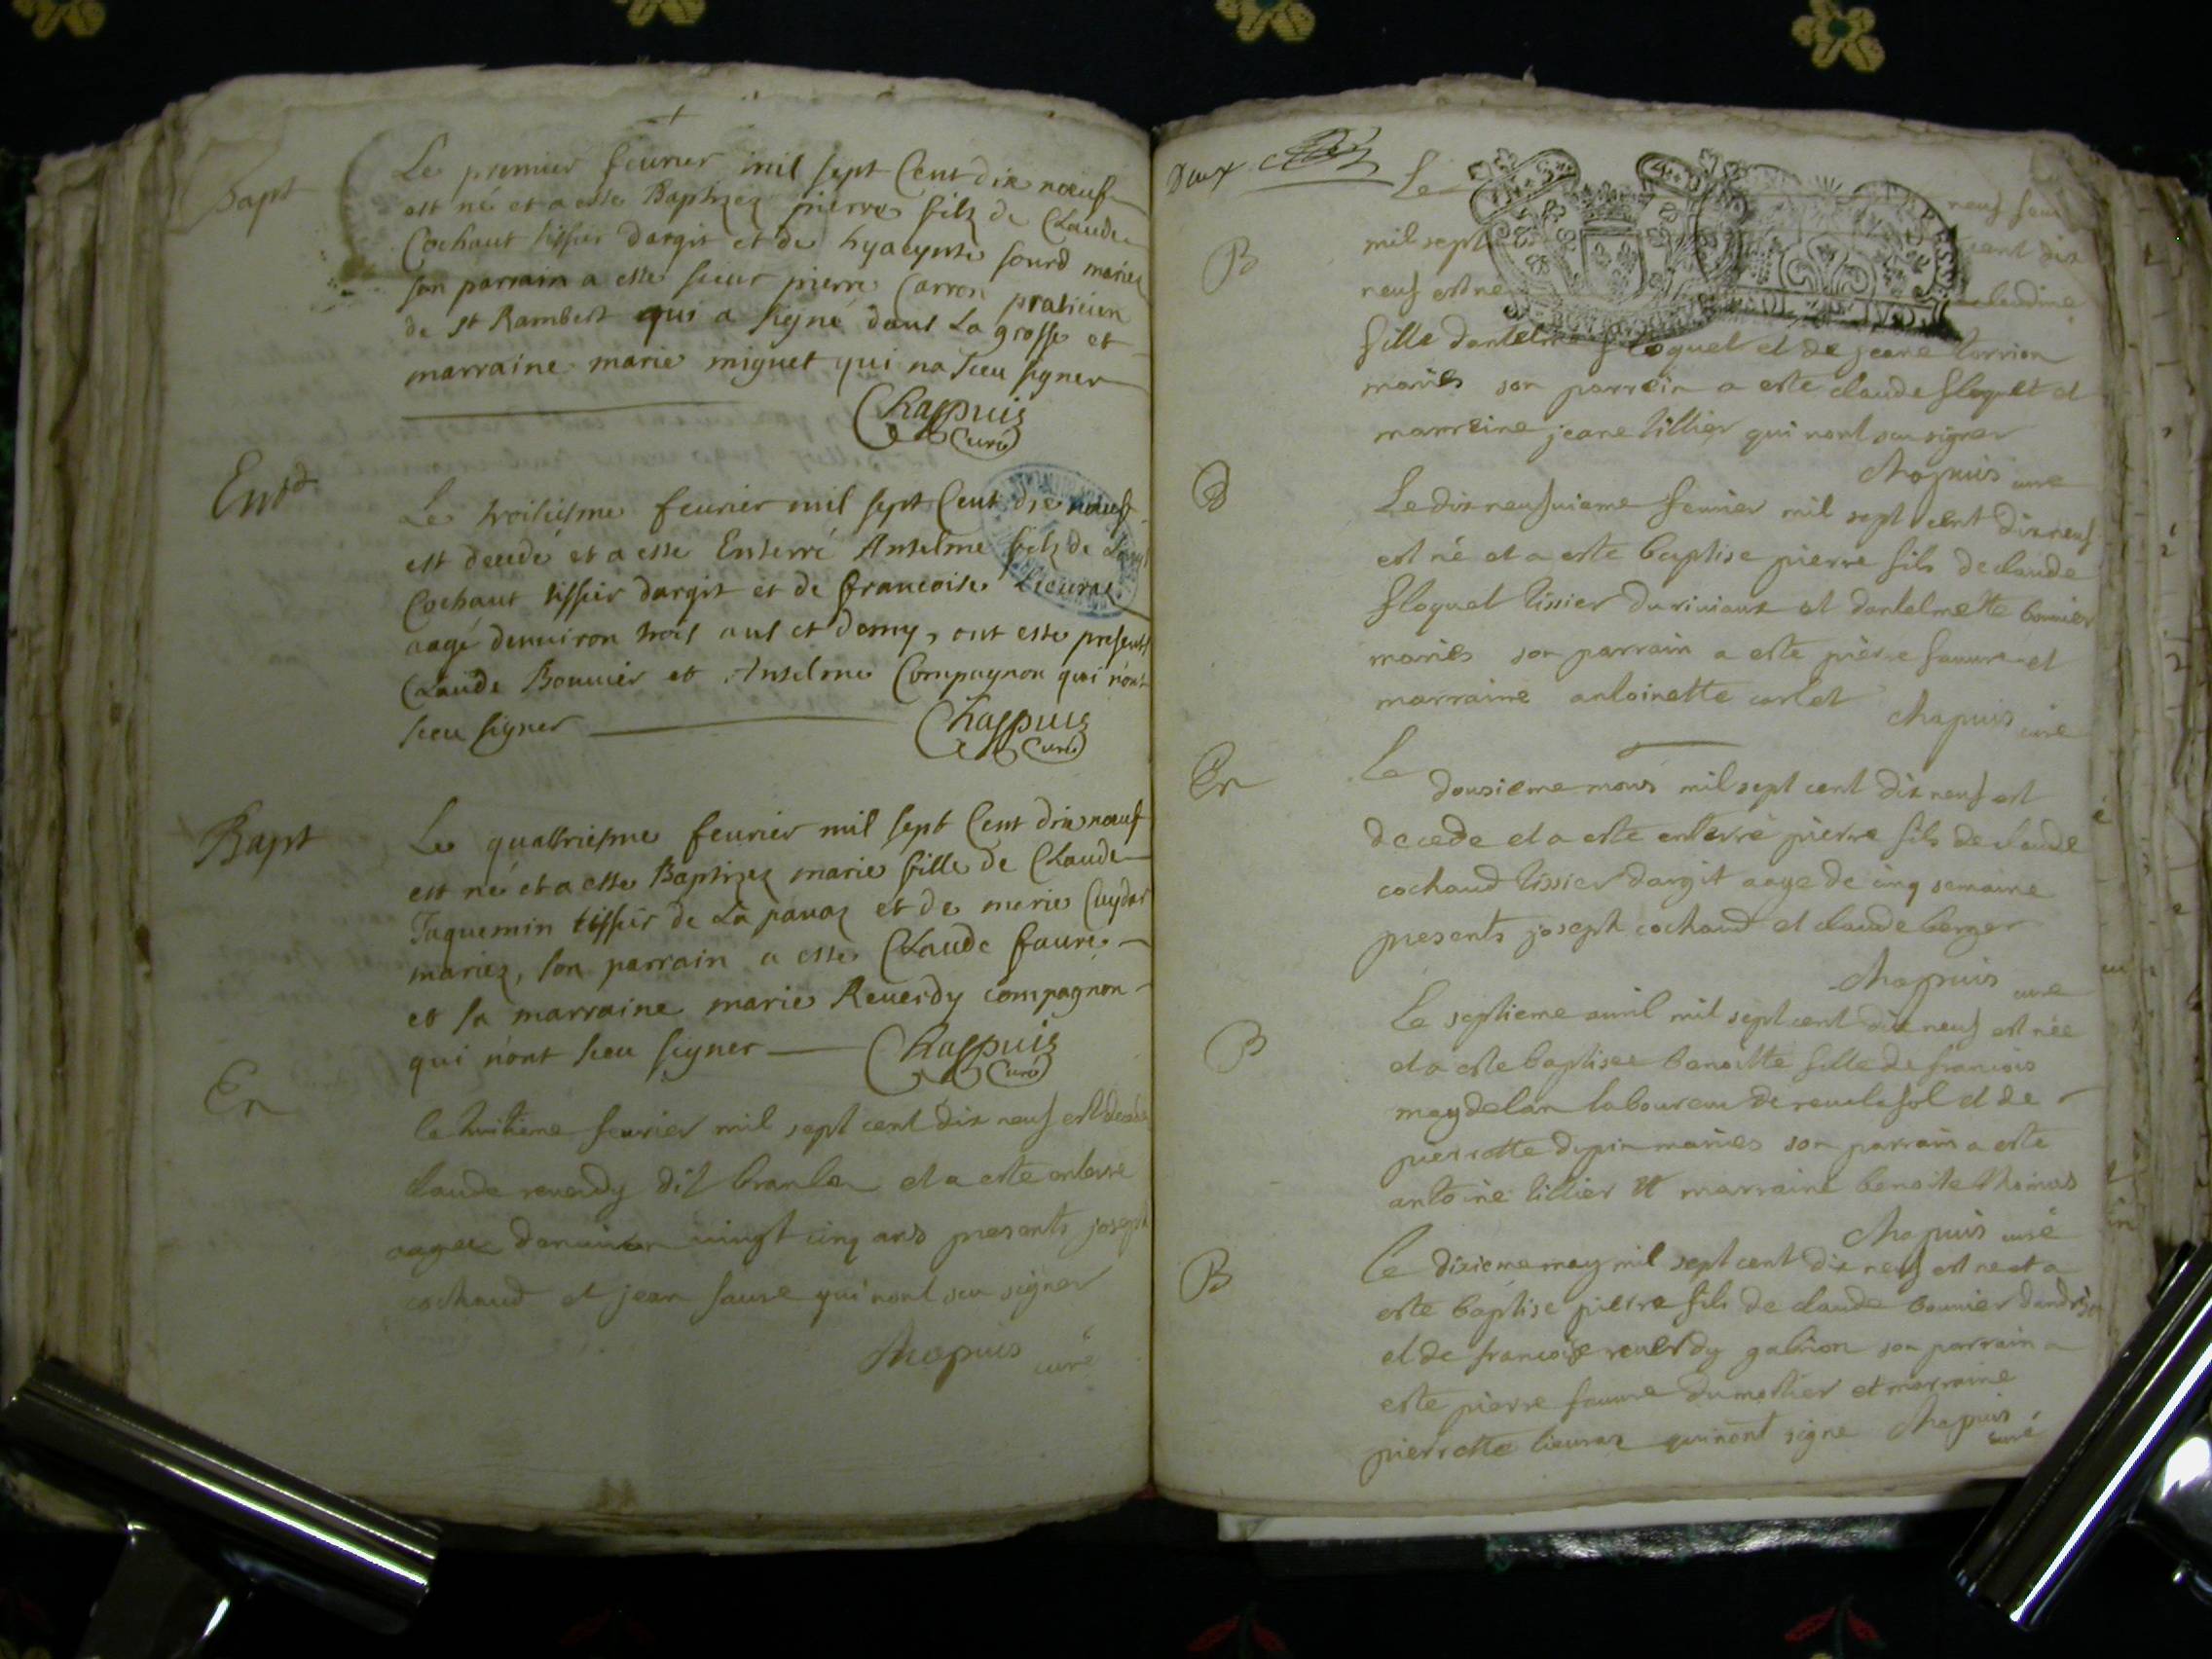 Bapt
Le premier feurier mil sept Cent dix nœuf
est né et a esté Baptizez pierre filz de Claude
Cochaut tissier dargit et de hyacynte sourd mariez
son parrain a esté sieur pierre Carron praticien
de st Rambert qui a signé dans La grosse et
marraine marie miguet qui na sceu signer
Chappuis
Curé
Entt
Le troisiesme feurier mil sept Cent dix nœuf
est decedé et a esté Enterré Anselme filz de
Cochaut tissier dargit et de francoise Lieuraz
aagé denuiron trois ans et demy, ont esté presents
Claude Bouuier et Anselme Compagnon qui nont
sceu signer Chappuis
Curé
Bapt
Le quattriesme feurier mil sept Cent dix nœuf
est né et a esté Baptizez marie fille de Claude
Jaquemin tissier de La pauaz et de marie Cuydar
mariez, son parrain a esté Claude faure
et sa marraine marie Reuerdy compagnon
qui nont sceu signer Chappuis
Curé
En
le huitieme feurier mil sept cent dix neuf est decede
claude reuerdy dit et a este enterre
aagee denuiron uingt cinq ans presents joseph
cochaud et jean faure qui nont seu signer
Chapuis curé
Deux
Le neuf feu
B
mil sept cent dix
neuf est ne claudine
fille dantelme floquet et de jeane Carrion
mariés son parrein a este claude floquet et
marreine jeane tillier qui nont seu signer
Chapuis cure
B
Le dix neufuieme feurier mil sept cent dix neuf
est né et a este baptise pierre fils de claude
floquet tissier du et dantelmette bouuier
mariés son parrain a este pierre fauure et
marraine antoinette carlet
Chapuis curé
En
Le
dousieme mars mil sept cent dix neuf est
decede et a este enterré pierre fils de claude
cochaud tissier dargit aage de cinq semaine
presents joseph cochaud et claude berger
Chapuis cure
B
Le septieme auril mil sept cent dix neuf est née
et a este baptisee benoitte fille de francois
maydelan laboureur de et de
pierrotte dupin mariés son parrain a este
antoine tillier et marraine benoite thomas
Chapuis curé
B
Le dixieme may mil sept cent dix neuf est ne et a
este baptise pierre fils de claude bouuier
et de francoise reuerdy gabrion son parrain a
este pierre fauure du mortier et marraine
pierrotte lieuraz qui nont signe Chapuis
curé